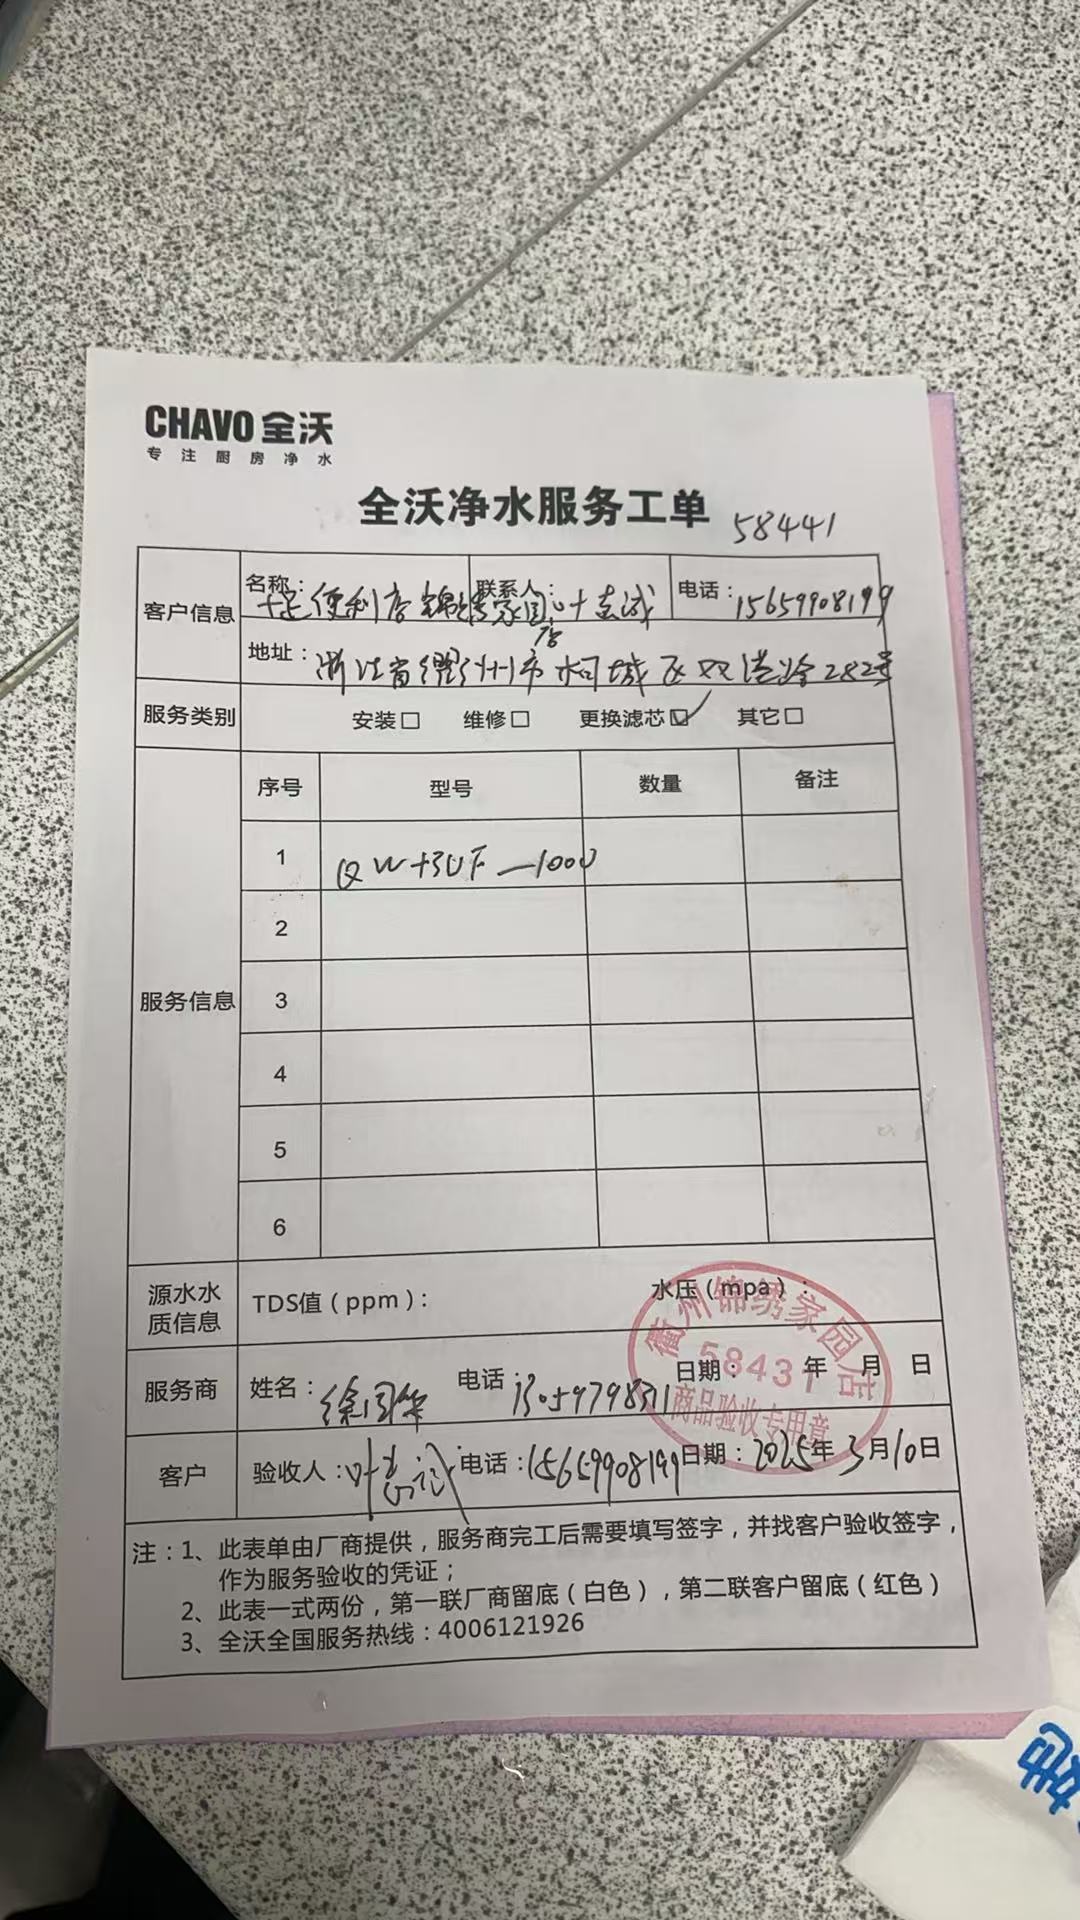 CHAVO 全沃
专注厨房净水
全沃净水服务工单 58441
客户信息
名称： 十足便利店锦绣家园店
联系人： 叶志诚
电话：15659908199
地址： 浙江省衢州市柯城区双港路282号
服务类别 安装□ 维修□ 更换滤芯☑ 其它□
服务信息
序号 型号 数量 备注
1 QW+3UF—1000
2
3
4
5
6
源水水质信息
TDS值（ppm）： 水压（mpa）：
服务商 姓名： 徐国华 电话：13059798311 日期： 年 月 日
客户 验收人： 电话：15659908199 日期：2025年3月10日
衢州锦绣家园店
58431
商品验收专用章
注：1、此表单由厂商提供，服务商完工后需要填写签字，并找客户验收签字，
作为服务验收的凭证；
2、此表一式两份，第一联厂商留底（白色），第二联客户留底（红色）
3、全沃全国服务热线：4006121926